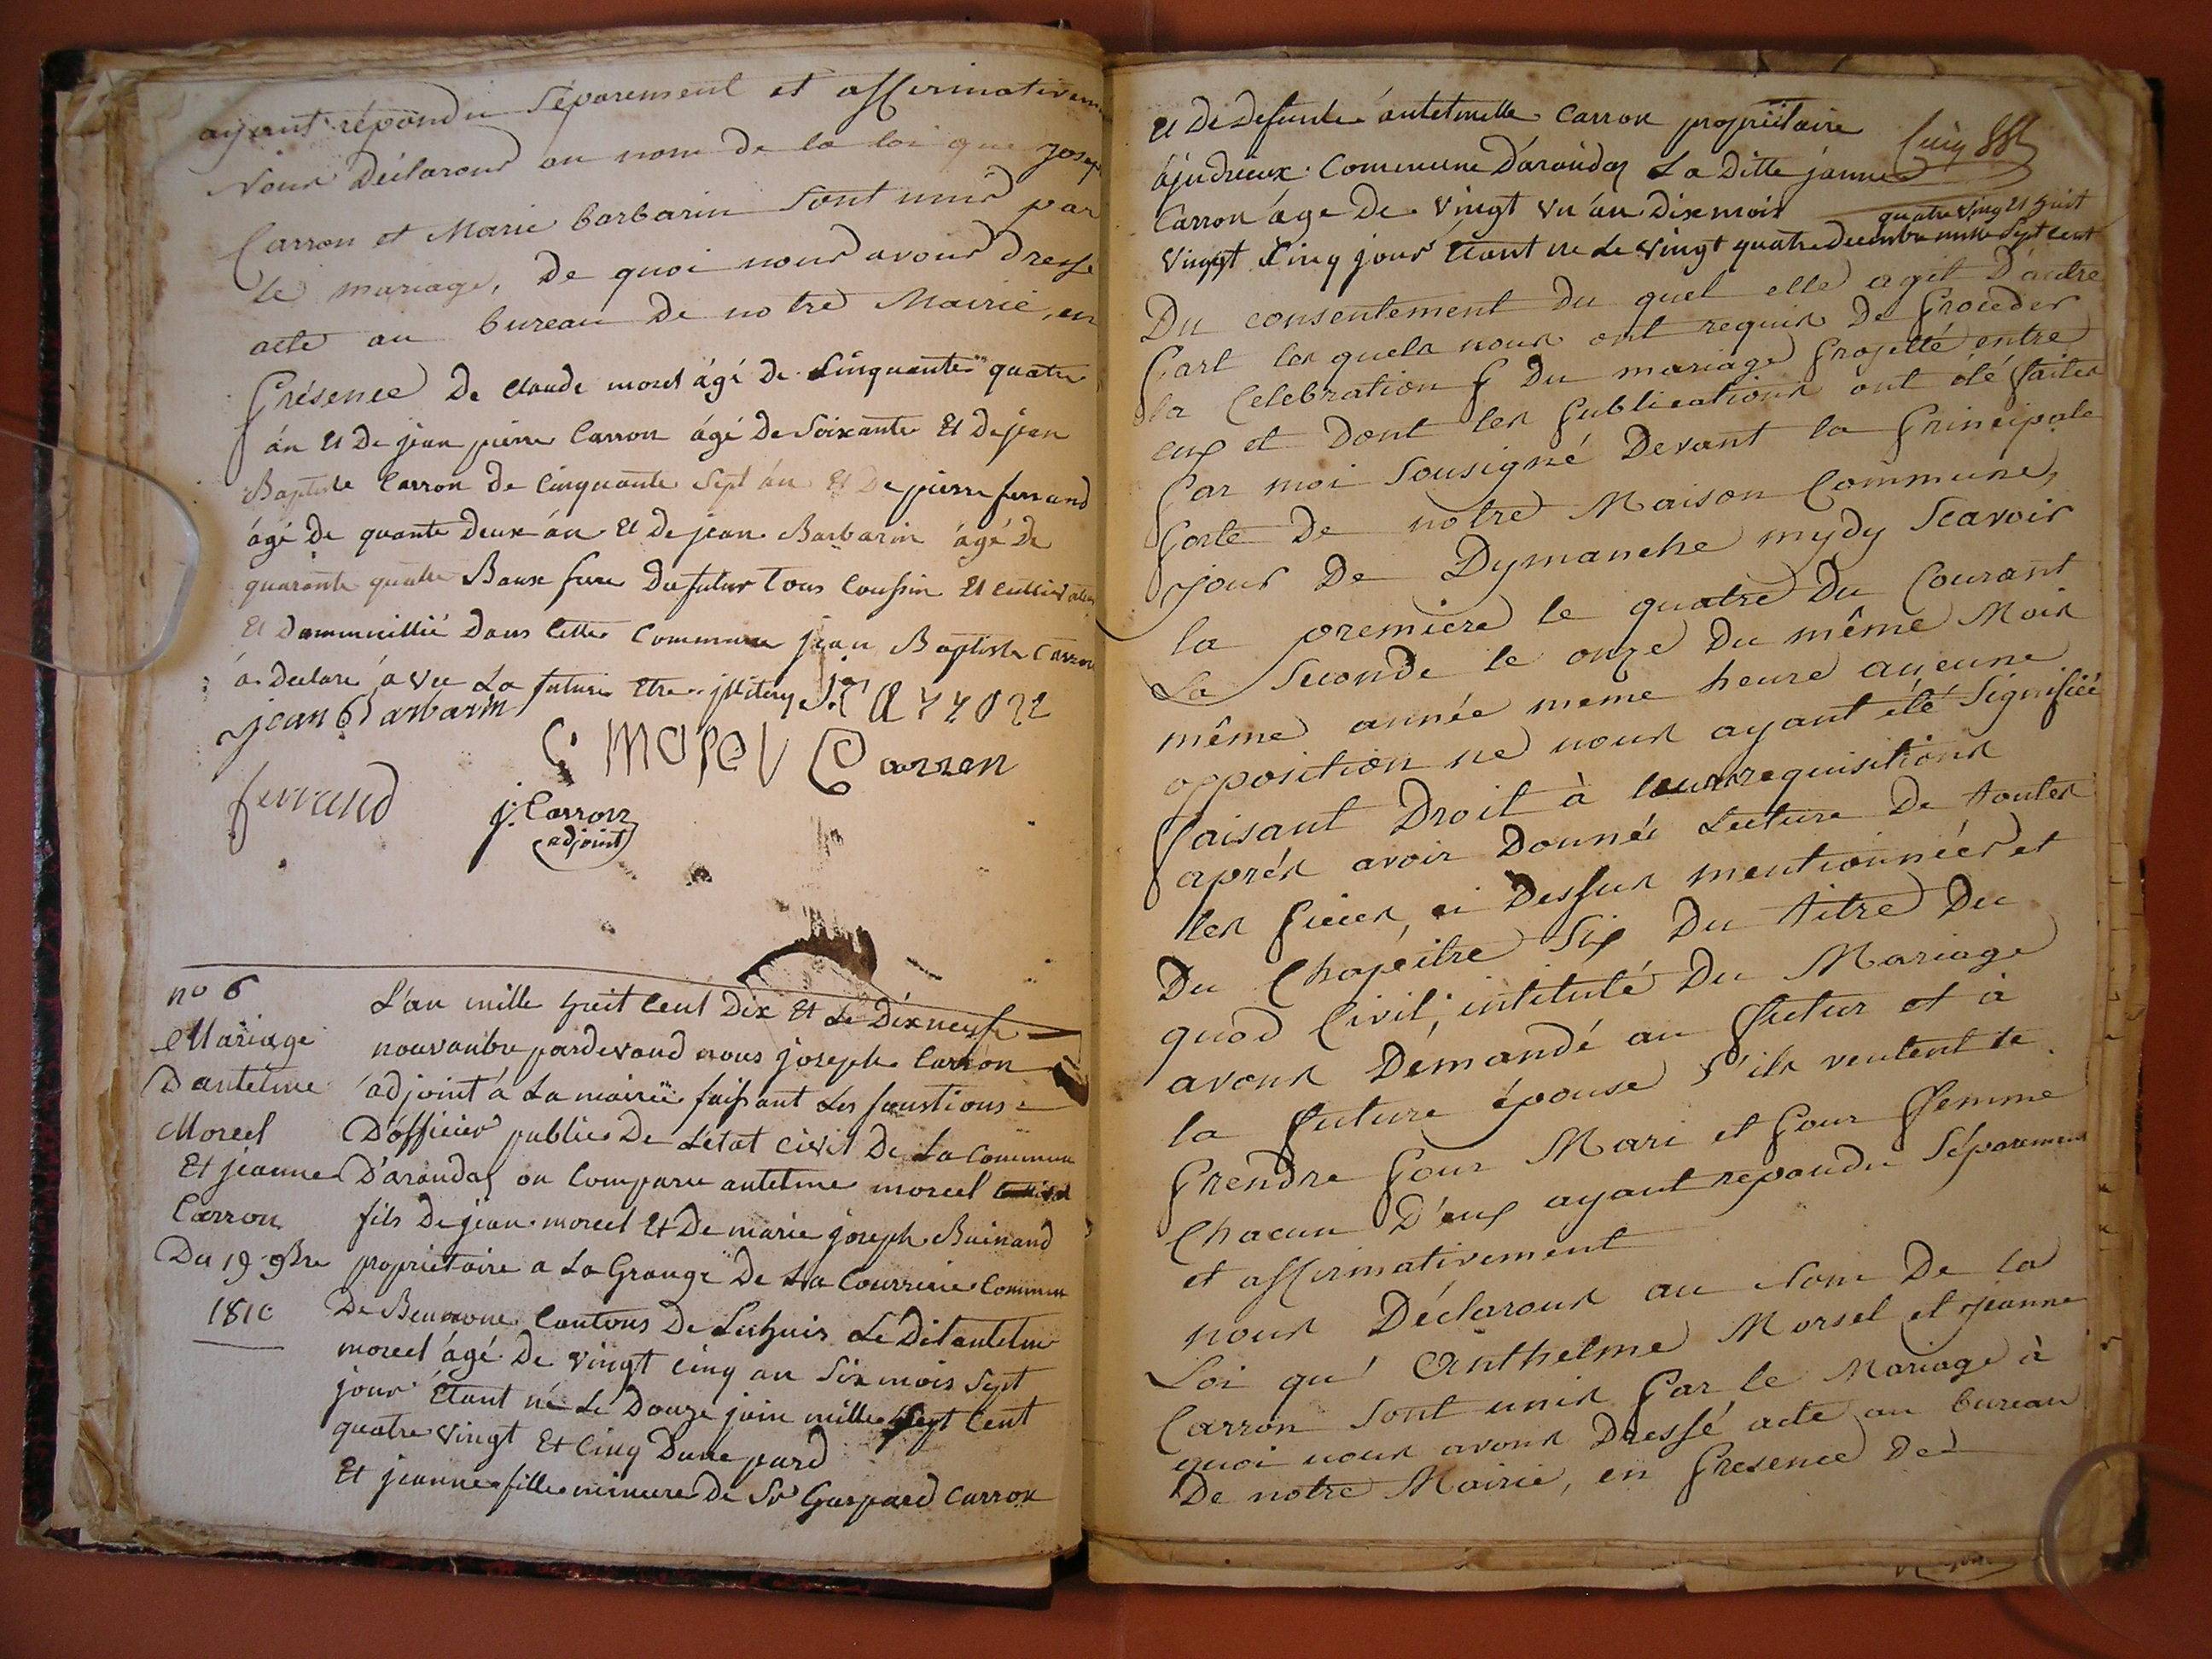 ayant répondu Séparement et affirmativem
Nous Déclarons au nom de la loi que Josep
Carron et Marie barbarin Sont unis par
le mariage, De quoi nous avons Dressé
acte au bureau De notre Mairie, en
Présence De Claude morel ágé de Cinquante quatre
án Et De jean pierre Carron ágé De Soixante Et De jean
Baptiste Carron de Cinquante Sept án Et De pierre ferrand
ágé De quante Deux án Et De jean Barbarin ágé De
quarante quatre Baux frere Du futur Tous Coussin Et
Et Dans Cette Commune jean Baptiste Carron
á Declaré á vec La future Etre
jean Barbarin
C. MOREL Carron
ferrand
j. Carron
adjoint
no 6
Mariage
Dantelme
Morcel
Et jeanne
Carron
Du 19 9bre
1810
L'an mille huit Cent Dix Et Le Dixneuf
nouvanbre pardevand nous joseph Carron
adjoint á La mairië faissant Les fonstions
D'officier publice De L'etat civil De La Commune
D'arandas on Comparu antelme morcel
fils De jean morcel Et De marie joseph Buinand
proprietaire a La Grange De La Courrerie Commun
De Cantons De Lechuis Le Dit antelme
morcel ágé De vingt Cinq an Six mois Sept
jour Étant né Le Douze juin mille Sept Cent
quatre vingt Et Cinq Dune pard
Et jeanne fille mineure De Sr Gaspard Carron
Et De Defunte Carron propriëtaire
Commune D'arandas La Ditte jeanne
Carron áge De vingt vn án Dix mois
quatre ving Et huit
Vingt Cinq jour Étant ne Le vingt quatre Decenbre mille Sept Cent
Du consentement Du quel elle agit D'autre
Part les quels nous ont requis De Proceder
la Celebration Du mariage Projetté entre
eux et Dont les Publications ont été faites
Par moi Sousigné Devant la Principale
Porte De notre Maison Commune,
jour De Dymanche mydy Scavoir
la premiere le quatre Du Courant
La Seconde le onze Du même Mois
même année meme heure aucune
opposition ne nous ayant été Signifiée
faisant Droit à leurs requisitions
aprés avoir Donnée Lecture De toutes
les Pieces, ci Dessus mentionnées et
Du Chapeitre Six Du titre Du
quod Civil, intitulé Du Mariage
avons Démandé au futur et à
la future épouse s'ils veulent se
Prendre Pour Mari et Pour femme
Chacun D'eux ayant repondu Séparement
et affirmativement
nous Déclarons au Nom De la
Loi qu' Anthelme Morsel et Jeanne
Carron Sont unis Par le Mariage à
quoi nous avons Dressé acte au bureau
De notre Mairie, en Presence De